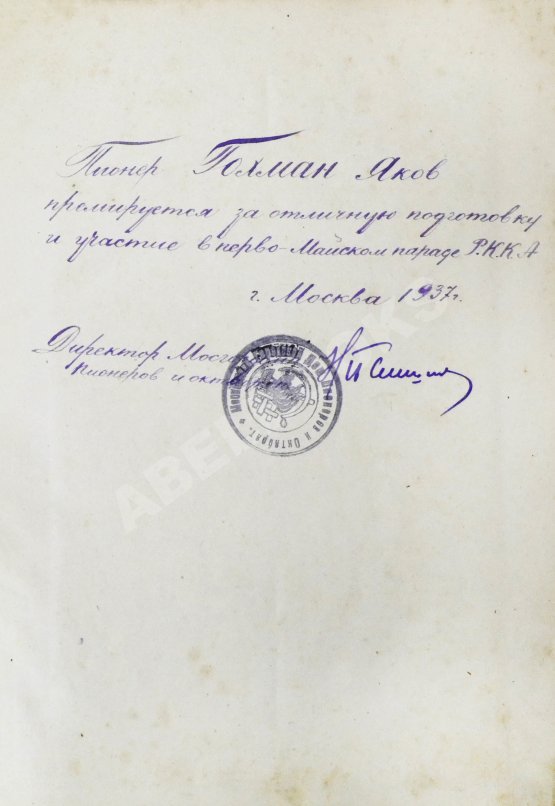 Пионер Гохман Яков
премируется за отличную подготовку
и участие в перво-Майском параде Р.К.К.А
г. Москва 1937г.
Директор
Пионеров и
Дом Пионеров и Октябрят.